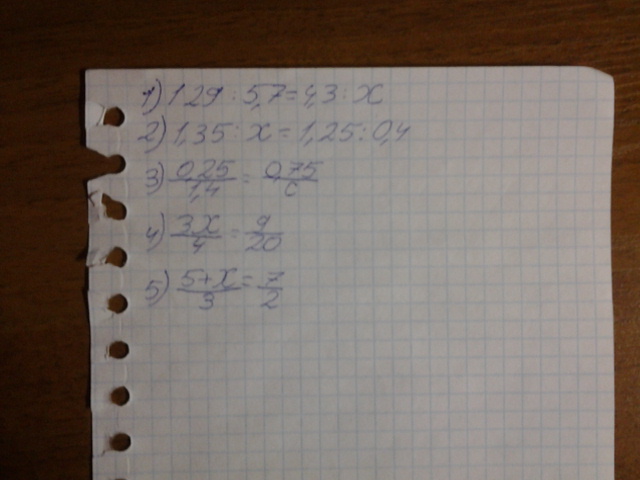 1) 129 : 5,7 = 4,3 : x
2) 1,35 : x = 1,25 : 0,4
3) 0,25/1,4 = 0,75/c
4) 3x/4 = 9/20
5) 5+x/3 = 7/2